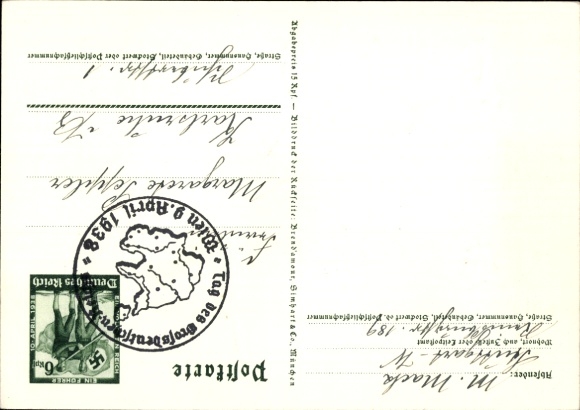 Postkarte
Absender:
M. Macka
Stuttgart-W
Wohnort, auch Zustell- oder Leitpostamt
189
Straße, Hausnummer, Gebäudeteil, Stockwerk od. Postschließfachnummer
6 Rpf
EIN VOLK EIN REICH
EIN FÜHRER
10. APRIL 1938
Deutsches Reich
Wien 9. April 1938 * Tag des Großdeutschen Reiches *
Margarete Seppler
Karlsruhe i/B
1
Straße, Hausnummer, Gebäudeteil, Stockwerk oder Postschließfachnummer
Abgabepreis 15 Rpf. — Bilddruck der Rückseite: Brend'amour, Simhart & Co., München